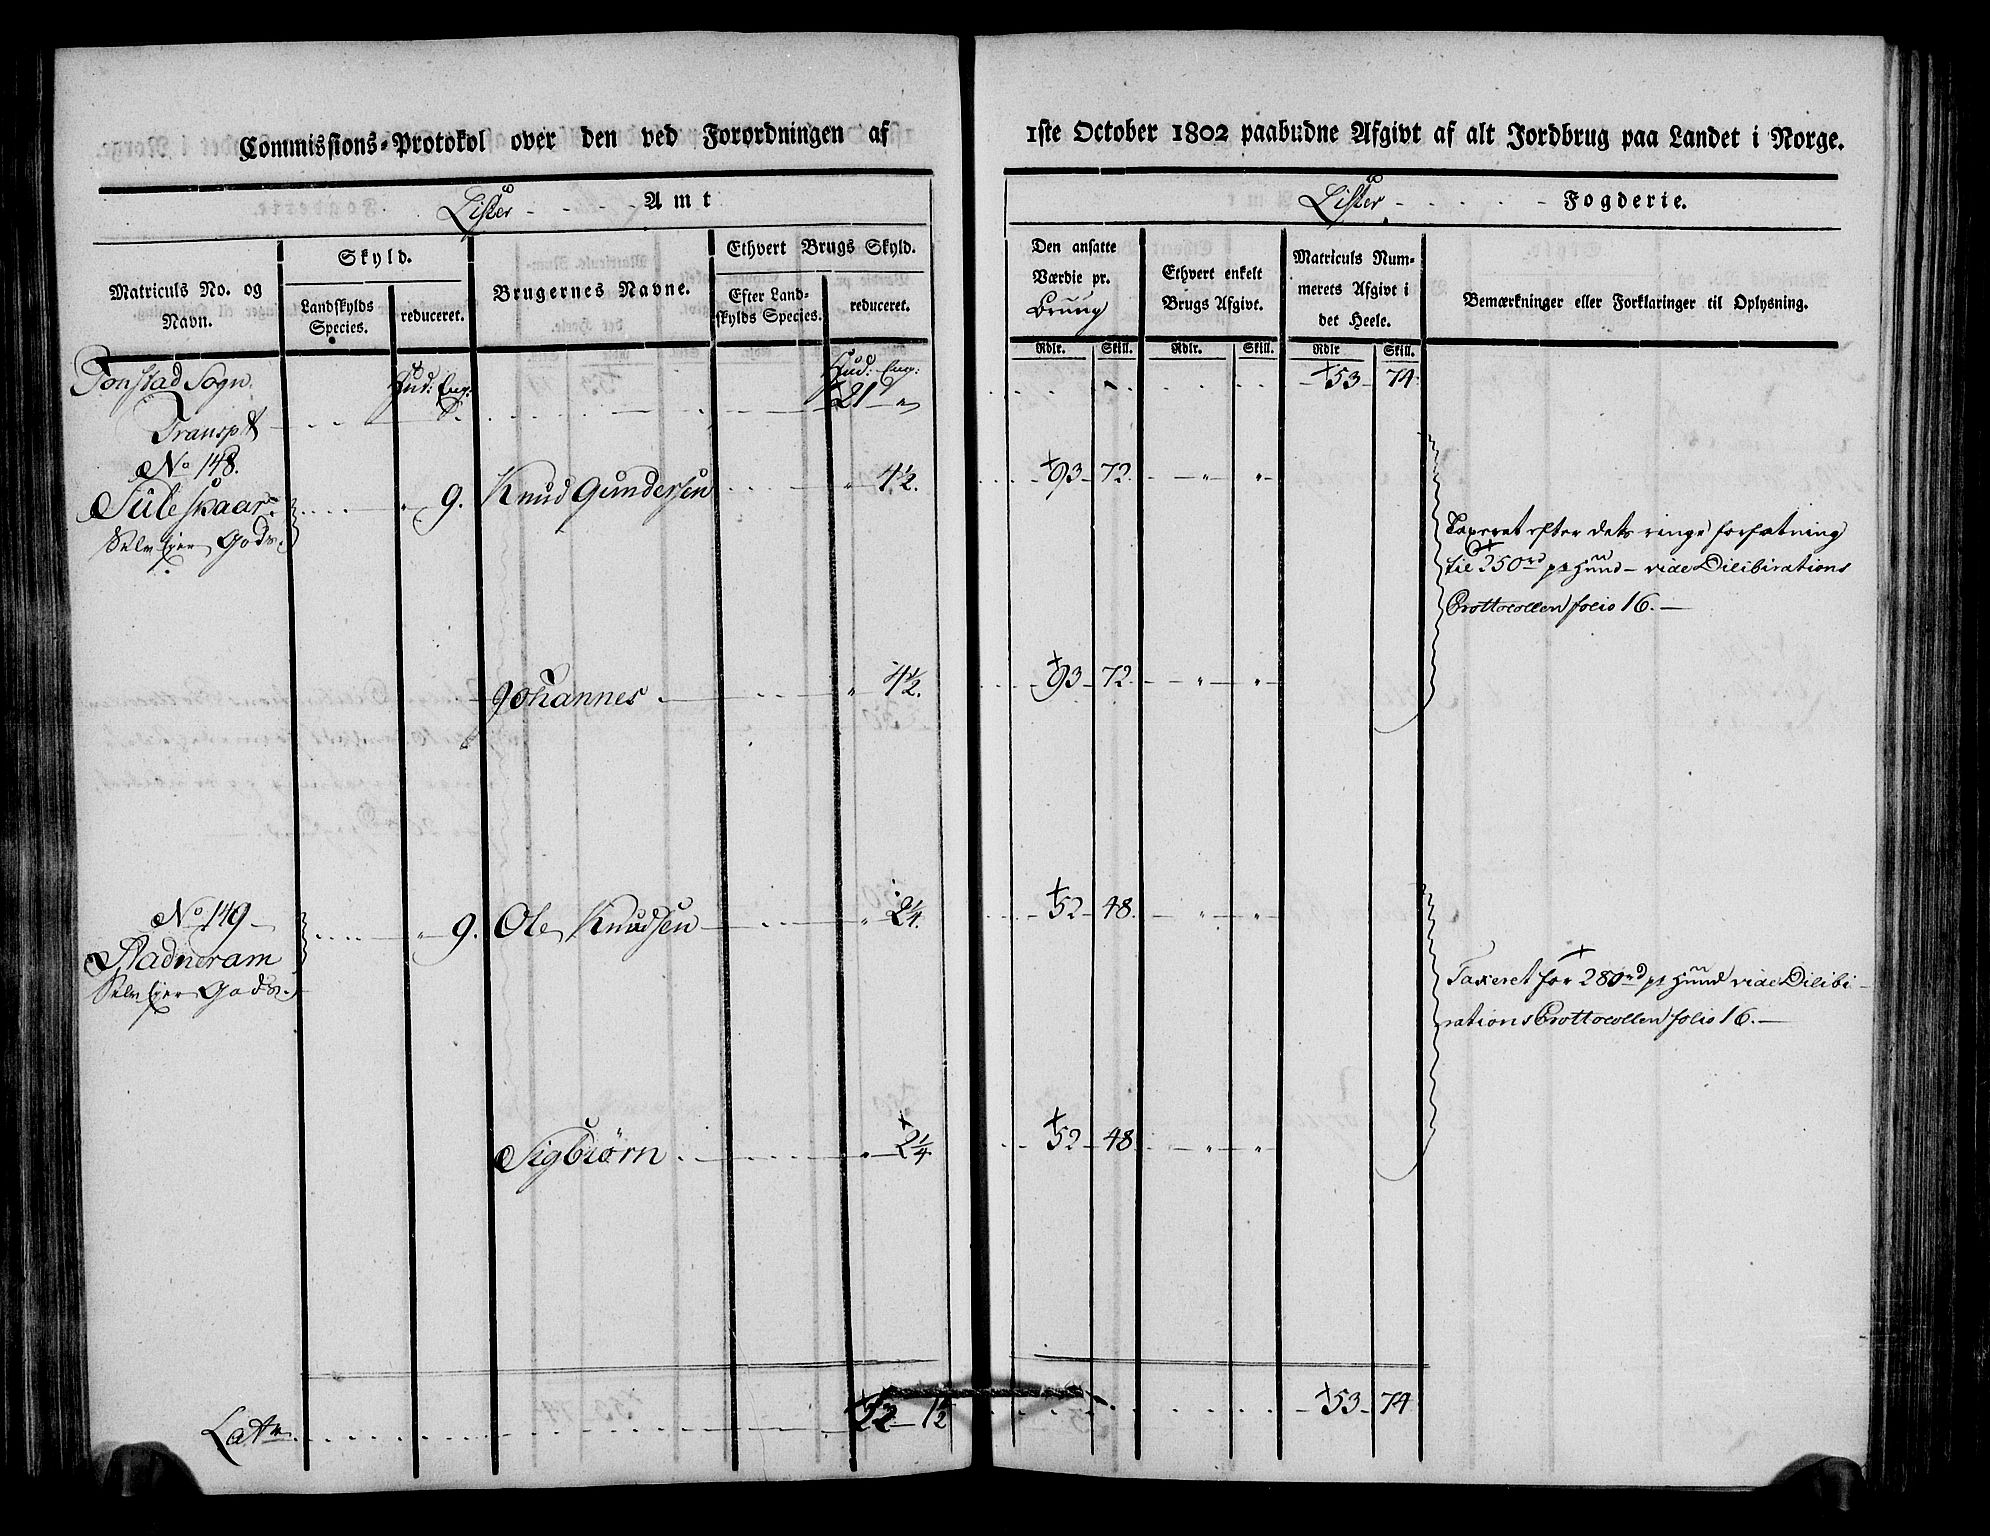 Commissions-Protokol over den ved Forordningen af
Lister - - - Amt
Matriculs No. og Navn.
Skyld.
Landskylds Species.
reduceret.
Brugernes Navne.
Ethvert Brugs Skyld.
Efter Landskylds Species.
reduceret.
Tonstad Sogn.
Hud: Eng:
Hud: Eng:
Transpt
21 - "
No 148.
Suleskaar " 9. Knud Gundersen " 4½.
Selv Ejer Gods.
Johannes " 4½.
No 149
Aadneram " 9. Ole Knudsen " 2¼.
Selv Ejer Gods.
Sigbiørn " 2¼
Lat 22 - 1½
1ste October 1802 paabudne Afgivt af alt Jordbrug paa Landet i Norge.
Lister - - - - Fogderie.
Den ansatte Værdie pr. Bruug
Ethvert enkelt Brugs Afgivt.
Matriculs Nummerets Afgivt i det Heele.
Bemærkninger eller Forklaringer til Oplysning.
Rdlr. Skill. Rdlr. Skill. Rdlr Skill.
53 - 74.
93 - 72. " "
Taxeret efter dets ringe forfatning
til 250rd pr Huud - vide Dilibirations
Prottocollen folio 16. -
93 - 72. " "
52 - 48. " "
Taxeret for 280rd pr Huud vide Dilibi-
rations Prottocollen folio 16. -
52 - 48 " "
53 - 74